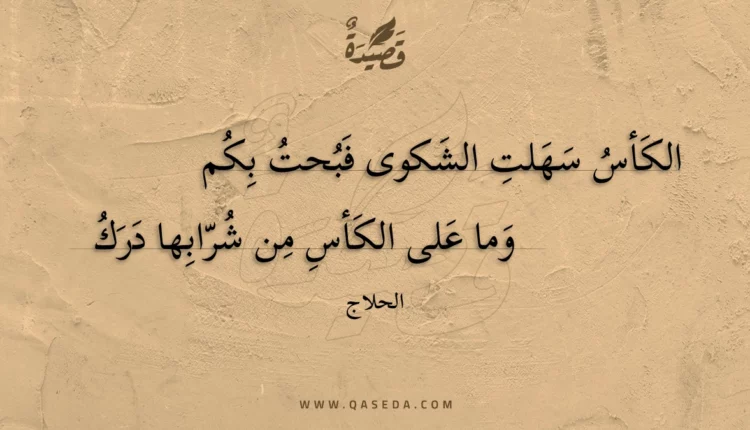 قَصِيدَةٌ
الكَأسُ سَهَلتِ الشَكوى فَبُحتُ بِكُم
وَما عَلى الكَأسِ مِن شُرّابِها دَرَكُ
الحلاج
WWW.QASEDA.COM